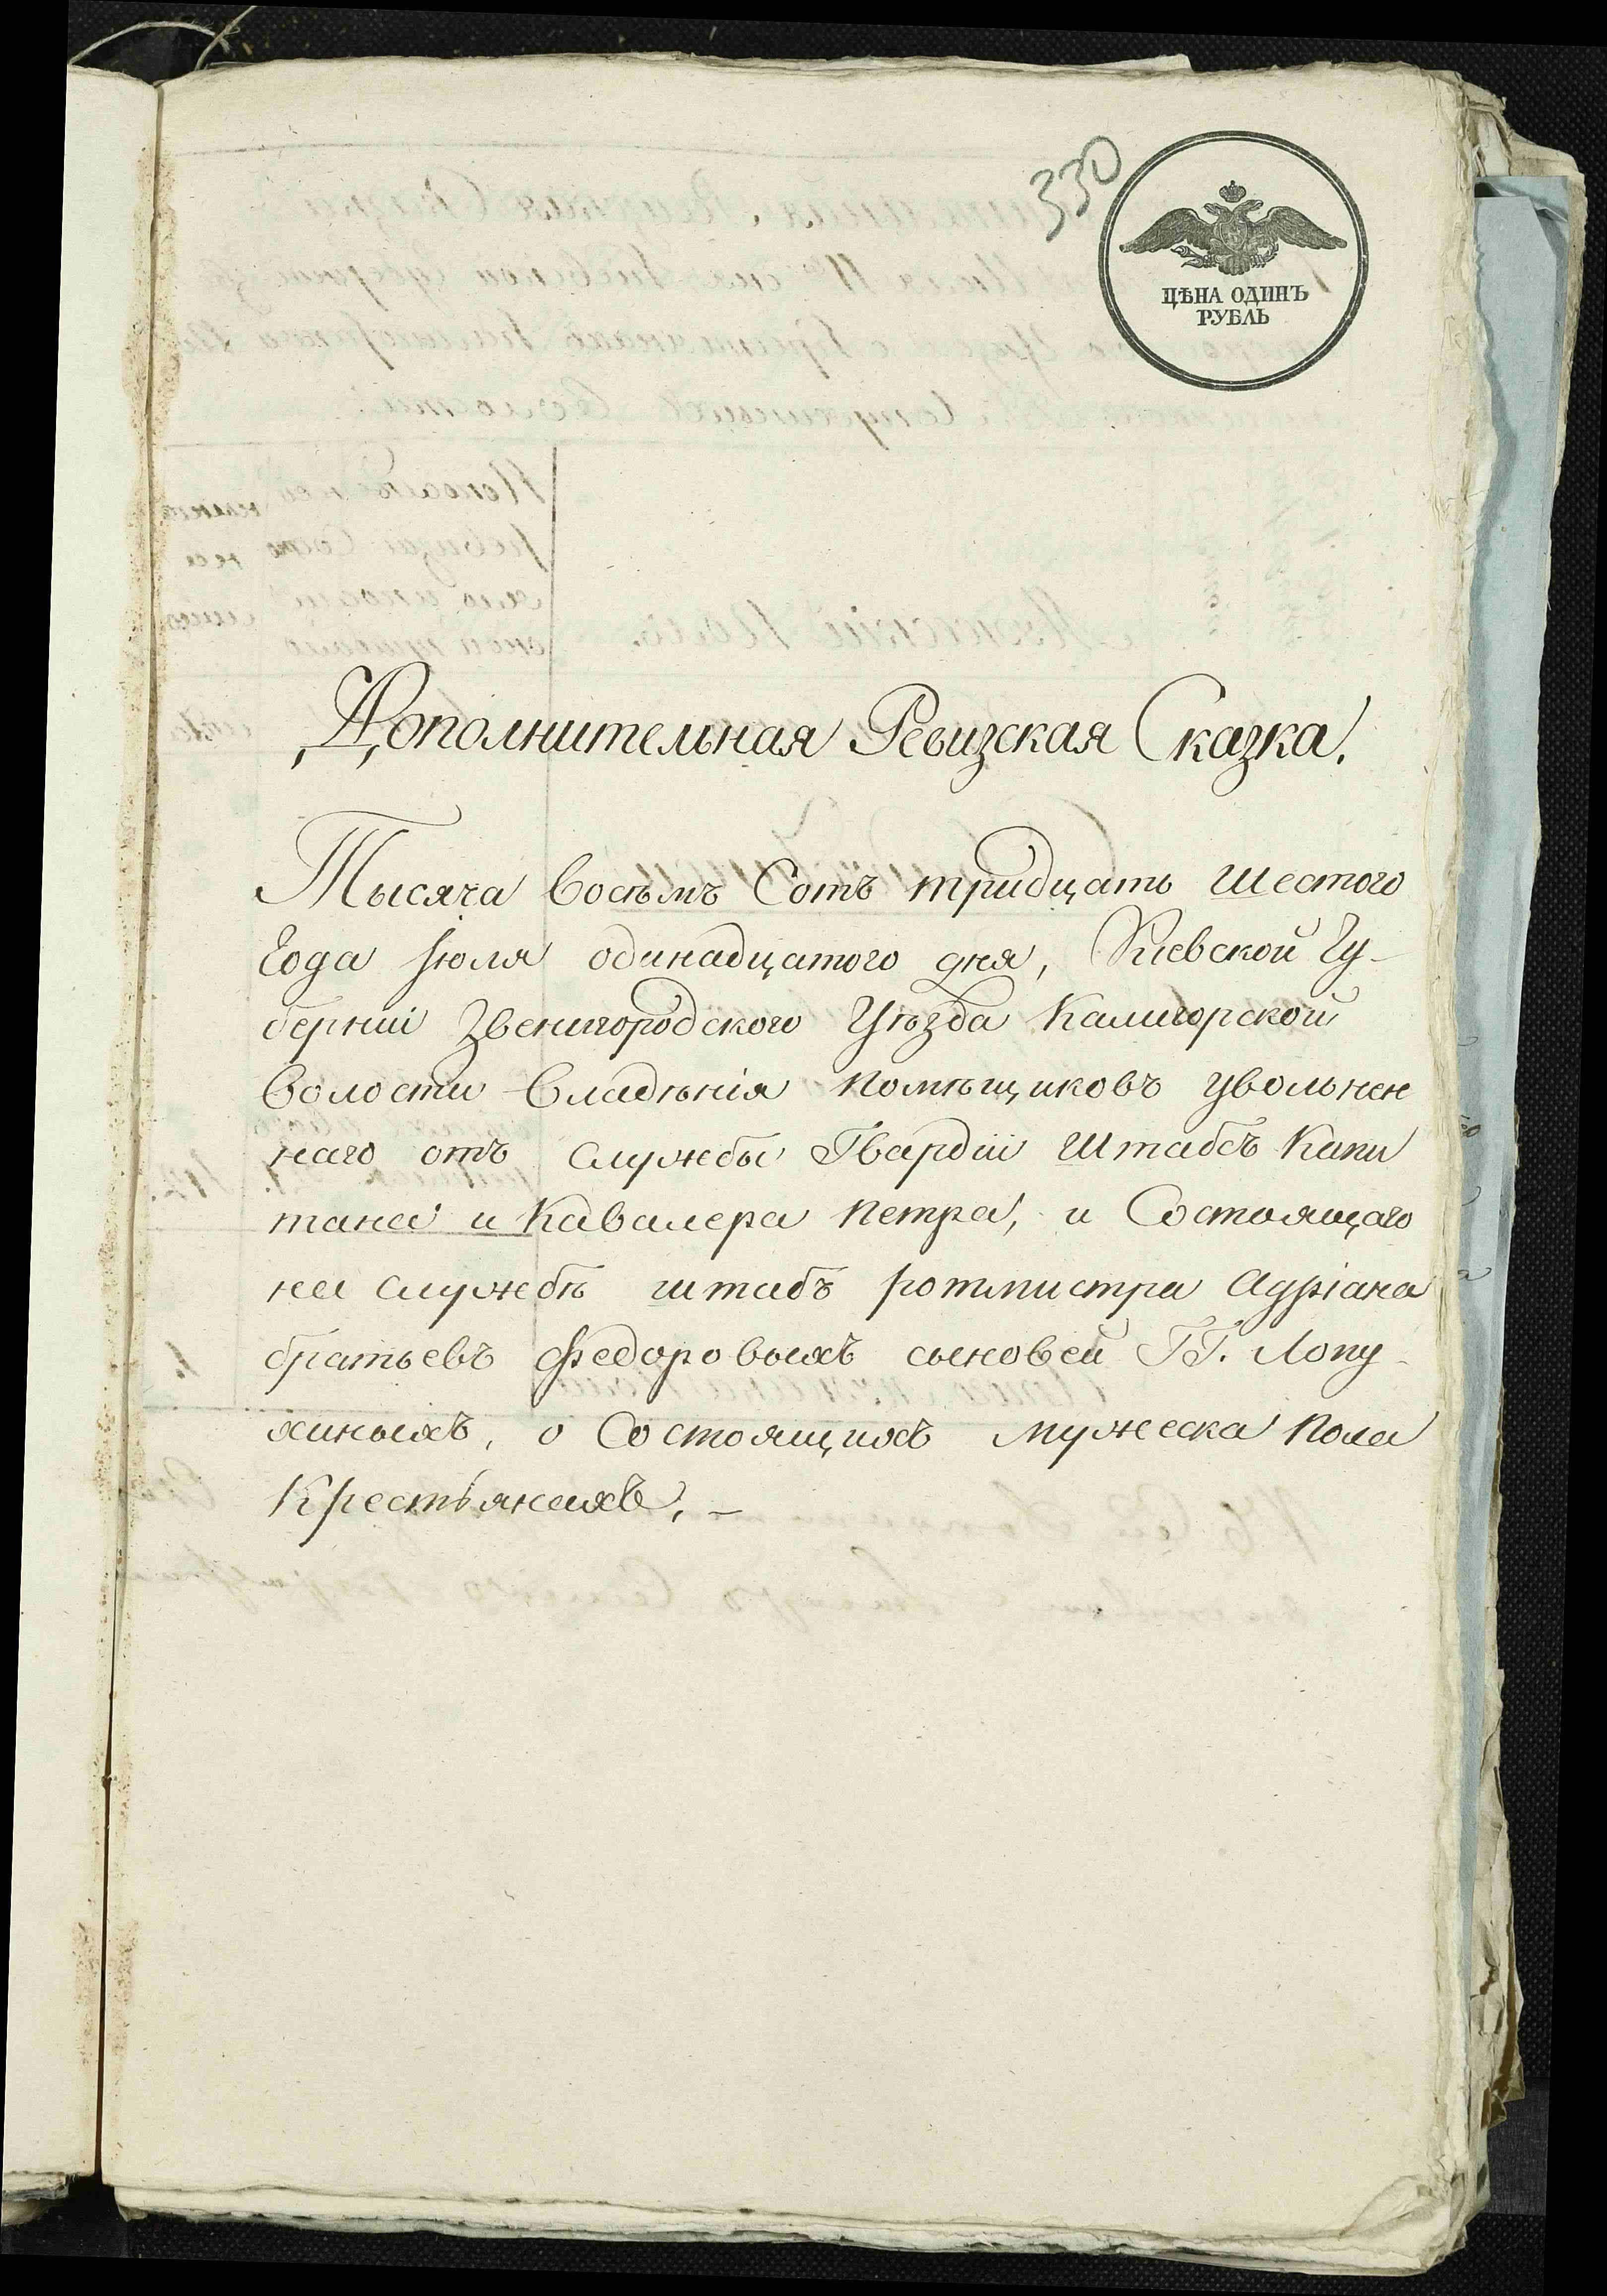 330
ЦѢНА ОДИНЪ
РУБЛЬ
Дополнительная Ревизская Сказка.
Тысяча восѣмъ Сотъ тридцать шестого
Года Іюля одинадцатого дня, Кіевской Гу-
берніи Звенигородского Уѣзда Калигорской
волости владѣнія помѣщиковъ уволънен
наго отъ службы Гвардіи Штабсъ Капи
тана и Кавалера Петра, и Состоящаго
на службѣ штабъ ротмистра Адріана
братьевъ Федоровыхъ сыновей ГГ. Лопу-
хиныхъ, о Состоящихъ мужеска пола
Крестьянахъ. –